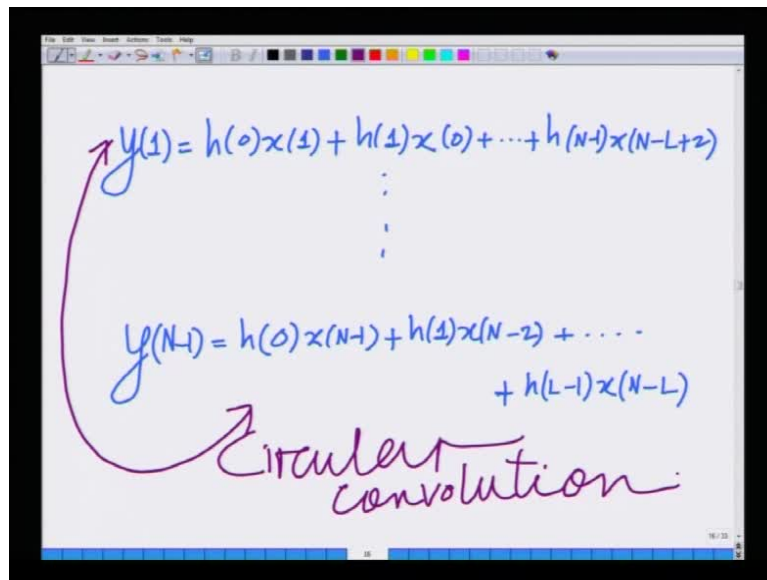 File Edit View Insert Actions Tools Help
y(1) = h(0)x(1) + h(1)x(0) + ··· + h(N-1)x(N-L+2)
y(N-1) = h(0)x(N-1) + h(1)x(N-2) + ····
+ h(L-1)x(N-L)
Circular
convolution.
16/33
16